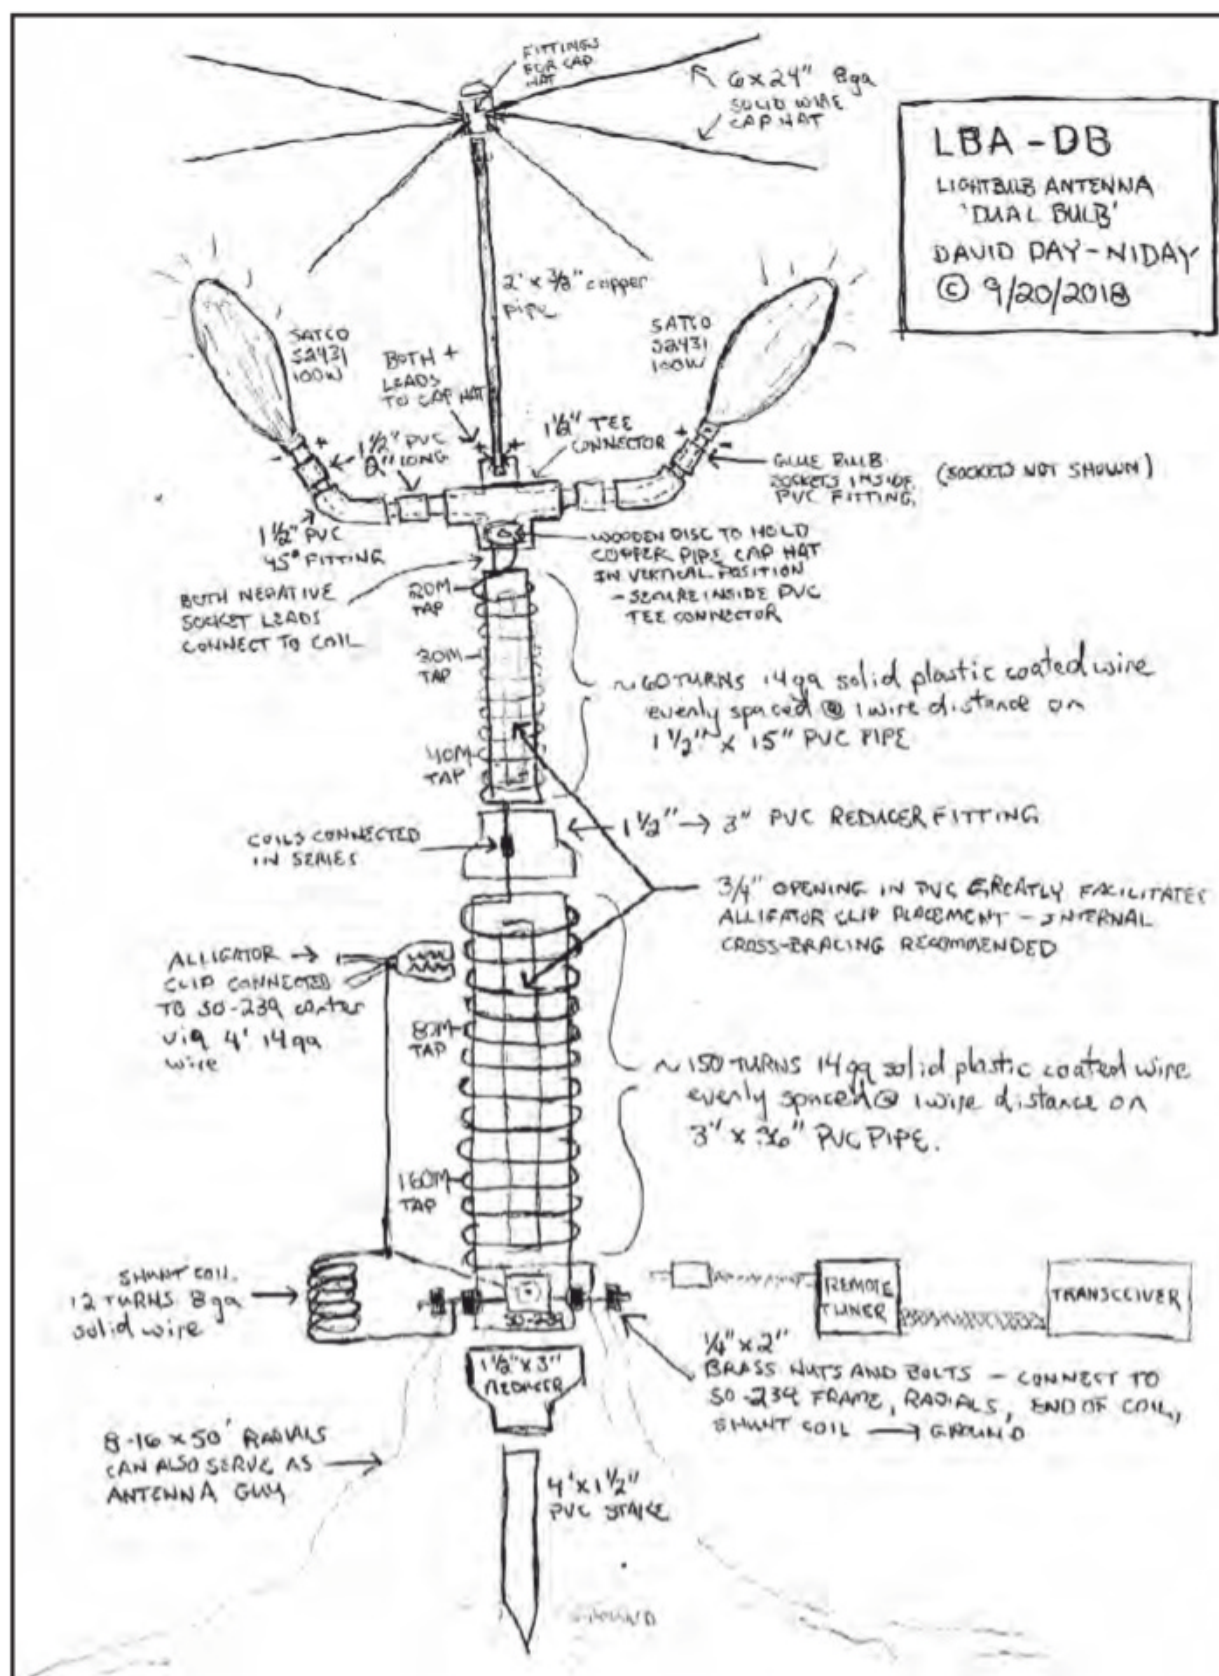 FITTINGS
FOR CAP
HAT
6 x 24" 8ga
SOLID WIRE
CAP HAT
LBA - DB
LIGHTBULB ANTENNA
'DUAL BULB'
DAVID DAY - N1DAY
© 9/20/2018
2' x 3/8" copper
pipe
SATCO
S2431
100W
SATCO
S2431
100W
BOTH +
LEADS
TO CAP HAT
1 1/2" TEE
CONNECTOR
1 1/2" PVC
8" LONG
+
-
+
-
+
+
GLUE BULB
SOCKETS INSIDE
PVC FITTING
(SOCKETS NOT SHOWN)
1 1/2" PVC
45° FITTING
WOODEN DISC TO HOLD
COPPER PIPE CAP HAT
IN VERTICAL POSITION
- SECURE INSIDE PVC
TEE CONNECTOR
BOTH NEGATIVE
SOCKET LEADS
CONNECT TO COIL
20M
TAP
30M
TAP
40M
TAP
~60 TURNS 14ga solid plastic coated wire
evenly spaced @ 1 wire distance on
1 1/2" x 15" PVC PIPE
COILS CONNECTED
IN SERIES
1 1/2" → 3" PVC REDUCER FITTING
3/4" OPENING IN PVC GREATLY FACILITATES
ALLIGATOR CLIP PLACEMENT - INTERNAL
CROSS-BRACING RECOMMENDED
ALLIGATOR
CLIP CONNECTED
TO SO-239 center
via 4' 14ga
wire
80M
TAP
~150 TURNS 14ga solid plastic coated wire
evenly spaced @ 1 wire distance on
3" x 36" PVC PIPE.
160M
TAP
SHUNT COIL
12 TURNS 8ga
solid wire
SO-239
REMOTE
TUNER
TRANSCEIVER
1/4" x 2"
BRASS NUTS AND BOLTS - CONNECT TO
SO-239 FRAME, RADIALS, END OF COIL,
SHUNT COIL → GROUND
1 1/2" x 3"
REDUCER
8-16 x 50' RADIALS
CAN ALSO SERVE AS
ANTENNA GUY
4' x 1 1/2"
PVC STAKE
GROUND